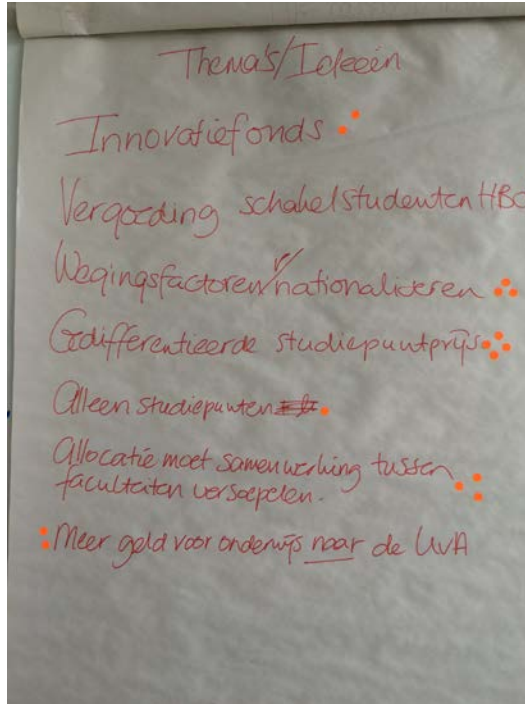 Thema's/Ideeën
Innovatiefonds
Vergoeding schakelstudenten HBO
Wegingsfactoren nationaliseren
Gedifferentieerde studiepuntprijs
Alleen studiepunten
Allocatie moet samenwerking tussen
faculteiten versoepelen.
Meer geld voor onderwijs naar de UvA